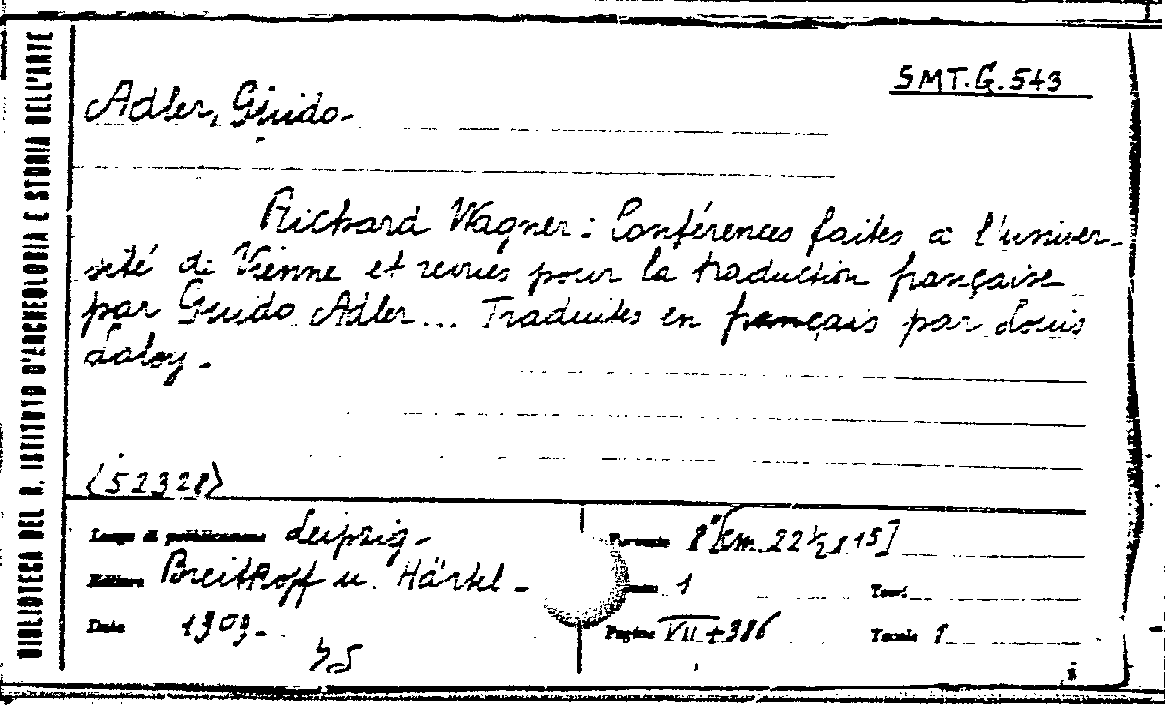 BIBLIOTECA DEL R. ISTITUTO D'ARCHEOLOGIA E STORIA DELL'ARTE
SMT.G.543
Adler, Guido.
Richard Wagner: Conférences faites a l'univer-
sité de Vienne et revues pour la traduction française
par Guido Adler... Traduites en français par Louis
Laloy.
<52328>
Luogo di pubblicazione Leipzig.
Editore Breitkopf u. Härtel.
Data 1909.
Formato 8° [cm. 22½ x 15]
1
Tavv.
Pagine VII + 386
Tavole 1